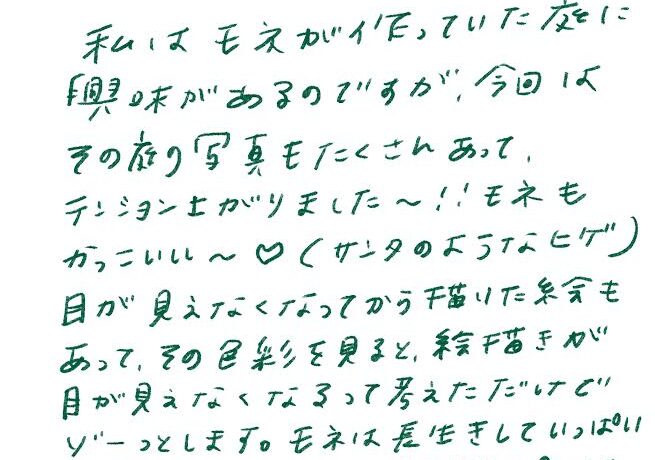 私はモネが作っていた庭に
興味があるのですが、今回は
その庭の写真もたくさんあって、
テンション上がりました〜!!モネも
かっこいい〜♡(サンタのようなヒゲ)
目が見えなくなってから描いた絵も
あって、その色彩を見ると、絵描きが
目が見えなくなるって考えただけで
ゾーっとします。モネは長生きしていっぱい